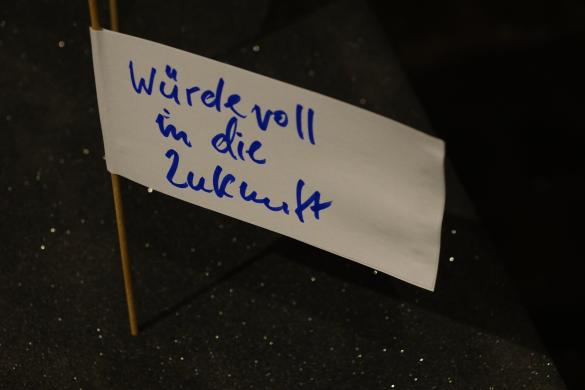 Würdevoll
in die
Zukunft